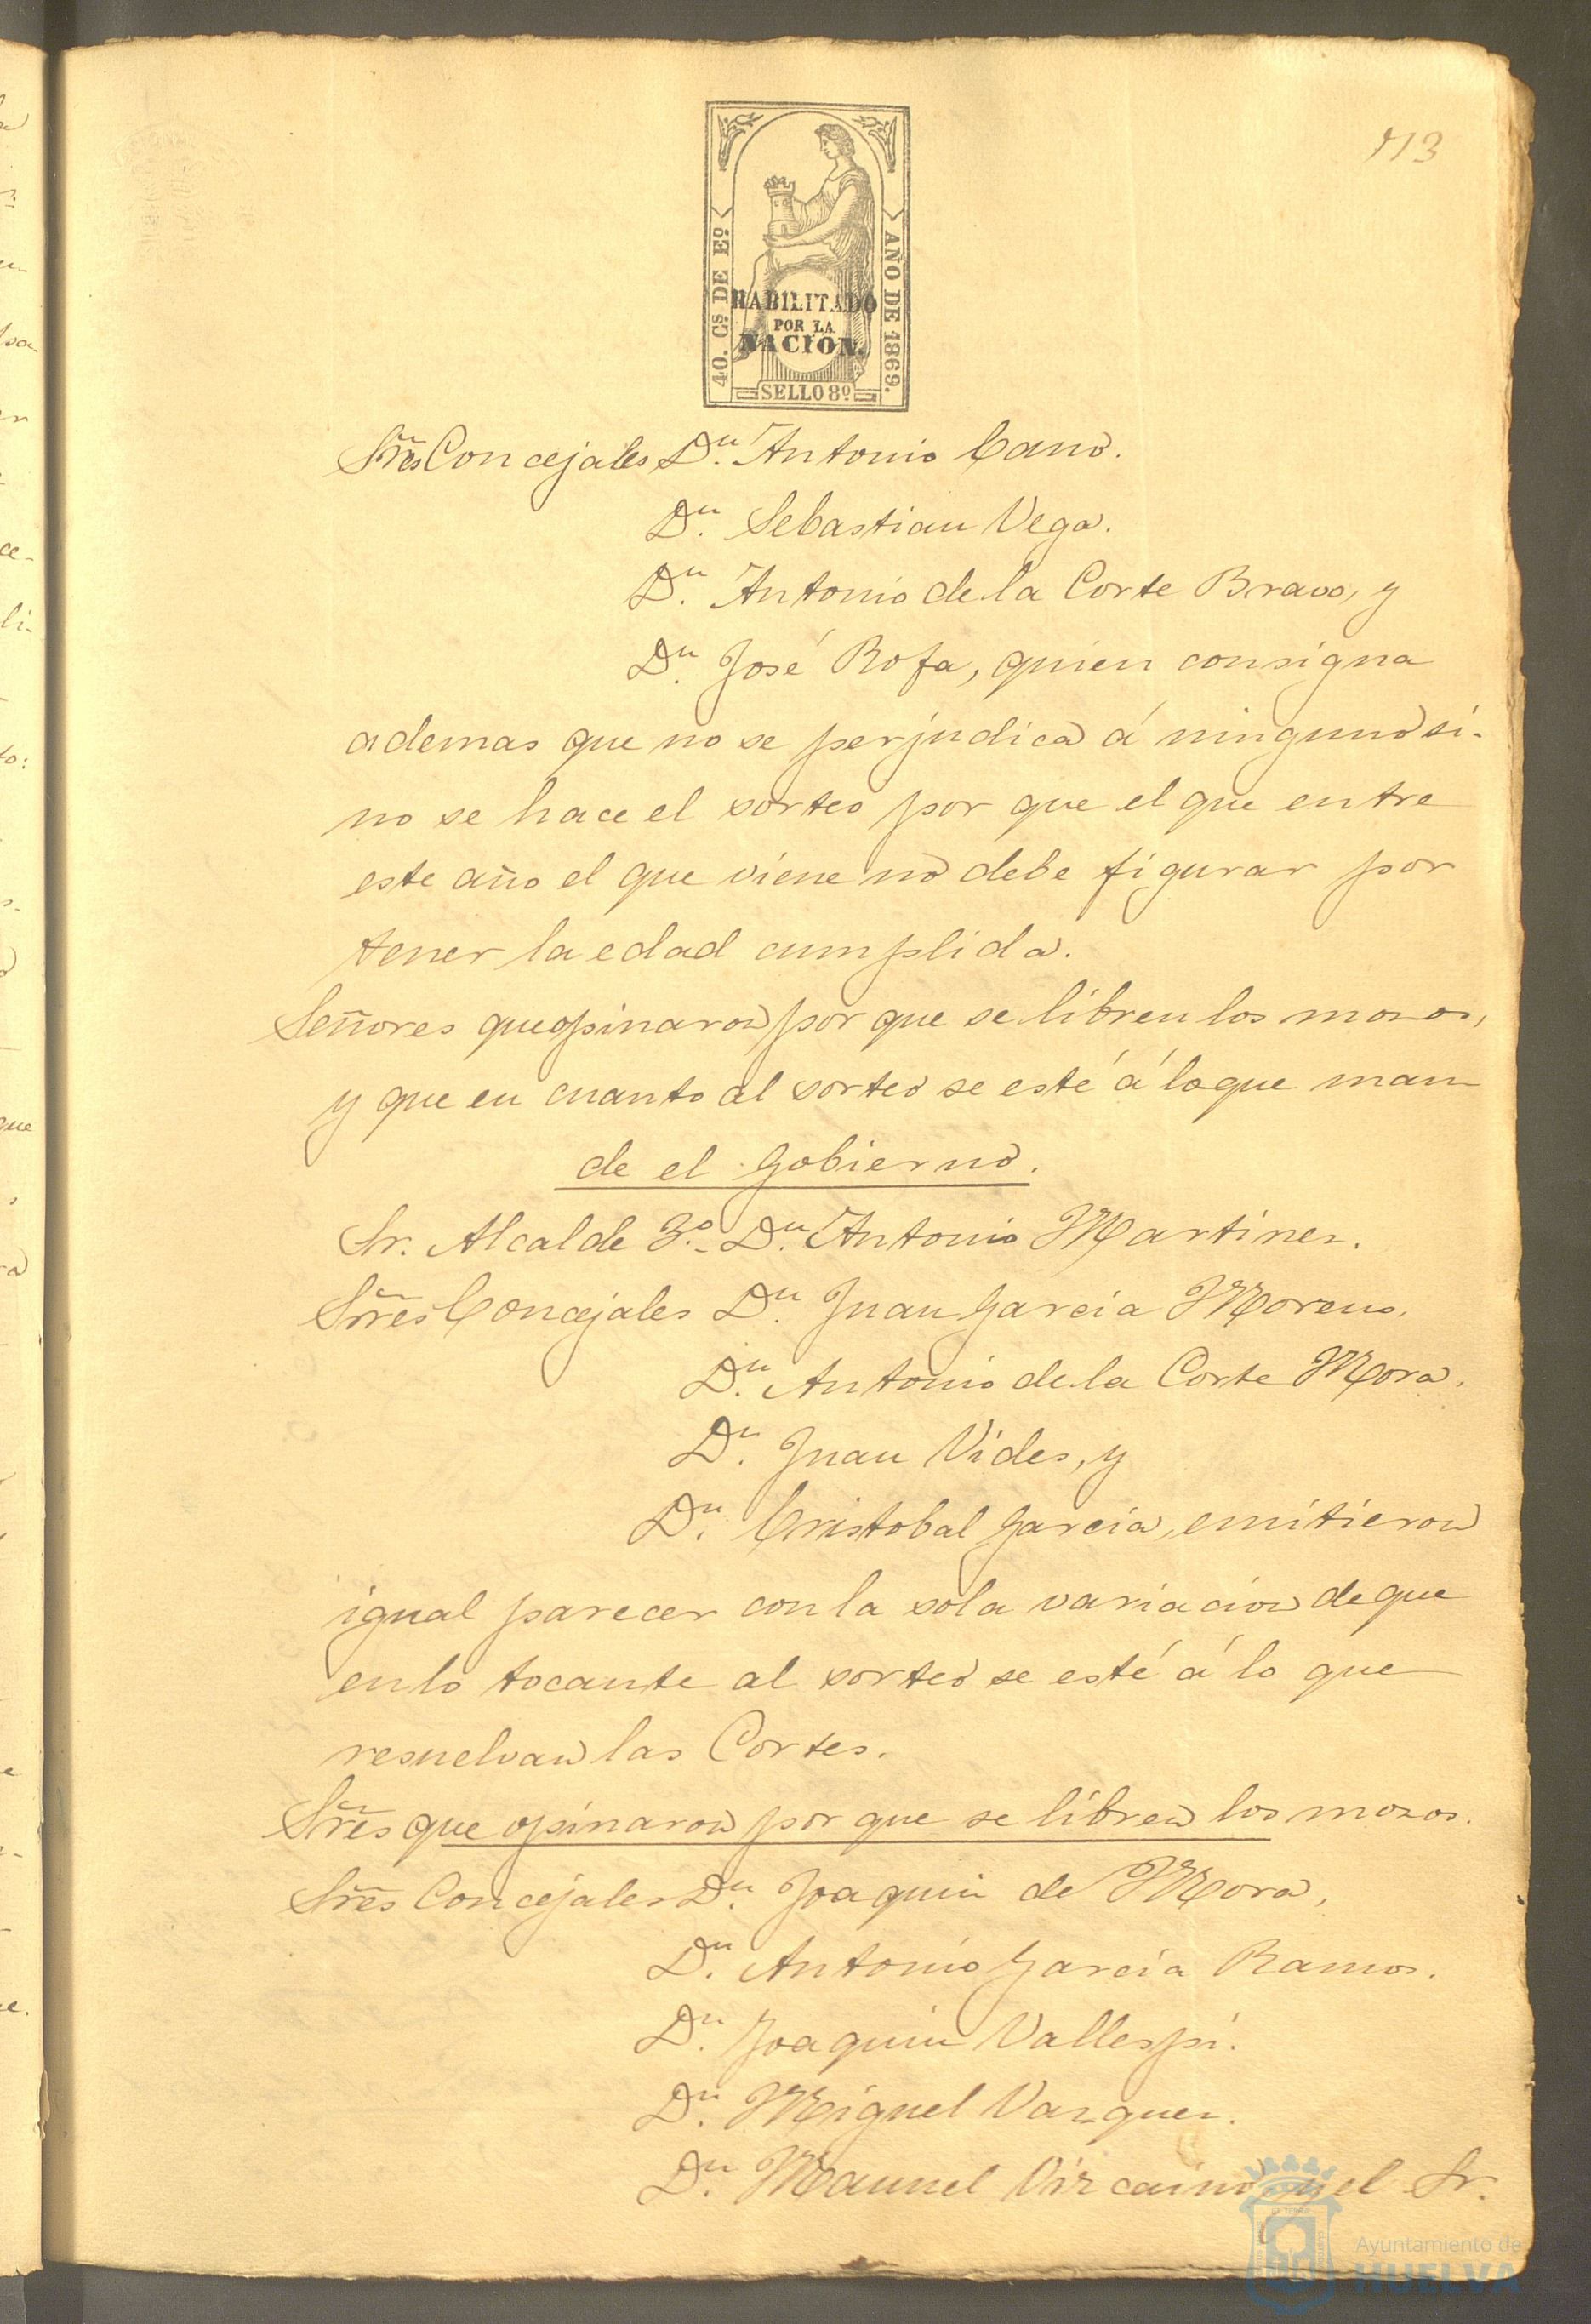 113
40. Cs. DE Eº
AÑO DE 1869.
HABILITADO
POR LA
NACION.
SELLO 8º
Sr̃es Concejales Dn. Antonio Cano.
Dn. Sebastian Vega.
Dn. Antonio de la Corte Bravo, y
Dn. José Rofa, quien consigna
ademas que no se perjudica á ninguno si-
no se hace el sorteo por que el que entre
este año el que viene no debe figurar por
tener la edad cumplida.
Señores que opinaron por que se libren los mozos,
y que en cuanto al sorteo se esté á lo que man
de el Gobierno.
Sr. Alcalde 3º. Dn. Antonio Martinez.
Sr̃es Concejales Dn. Juan Garcia Moreno.
Dn. Antonio de la Corte Mora.
Dn. Juan Vides, y
Dn. Cristobal Garcia, emitieron
igual parecer con la sola variacion de que
en lo tocante al sorteo se esté á lo que
resuelvan las Cortes.
Sr̃es que opinaron por que se libren los mozos.
Sr̃es Concejales Dn. Joaquin de Mora,
Dn. Antonio Garcia Ramos.
Dn. Joaquin Vallespi.
Dn. Miguel Vazquez.
Dn. Manuel Vizcaino y el Sr.
Ayuntamiento de
HUELVA